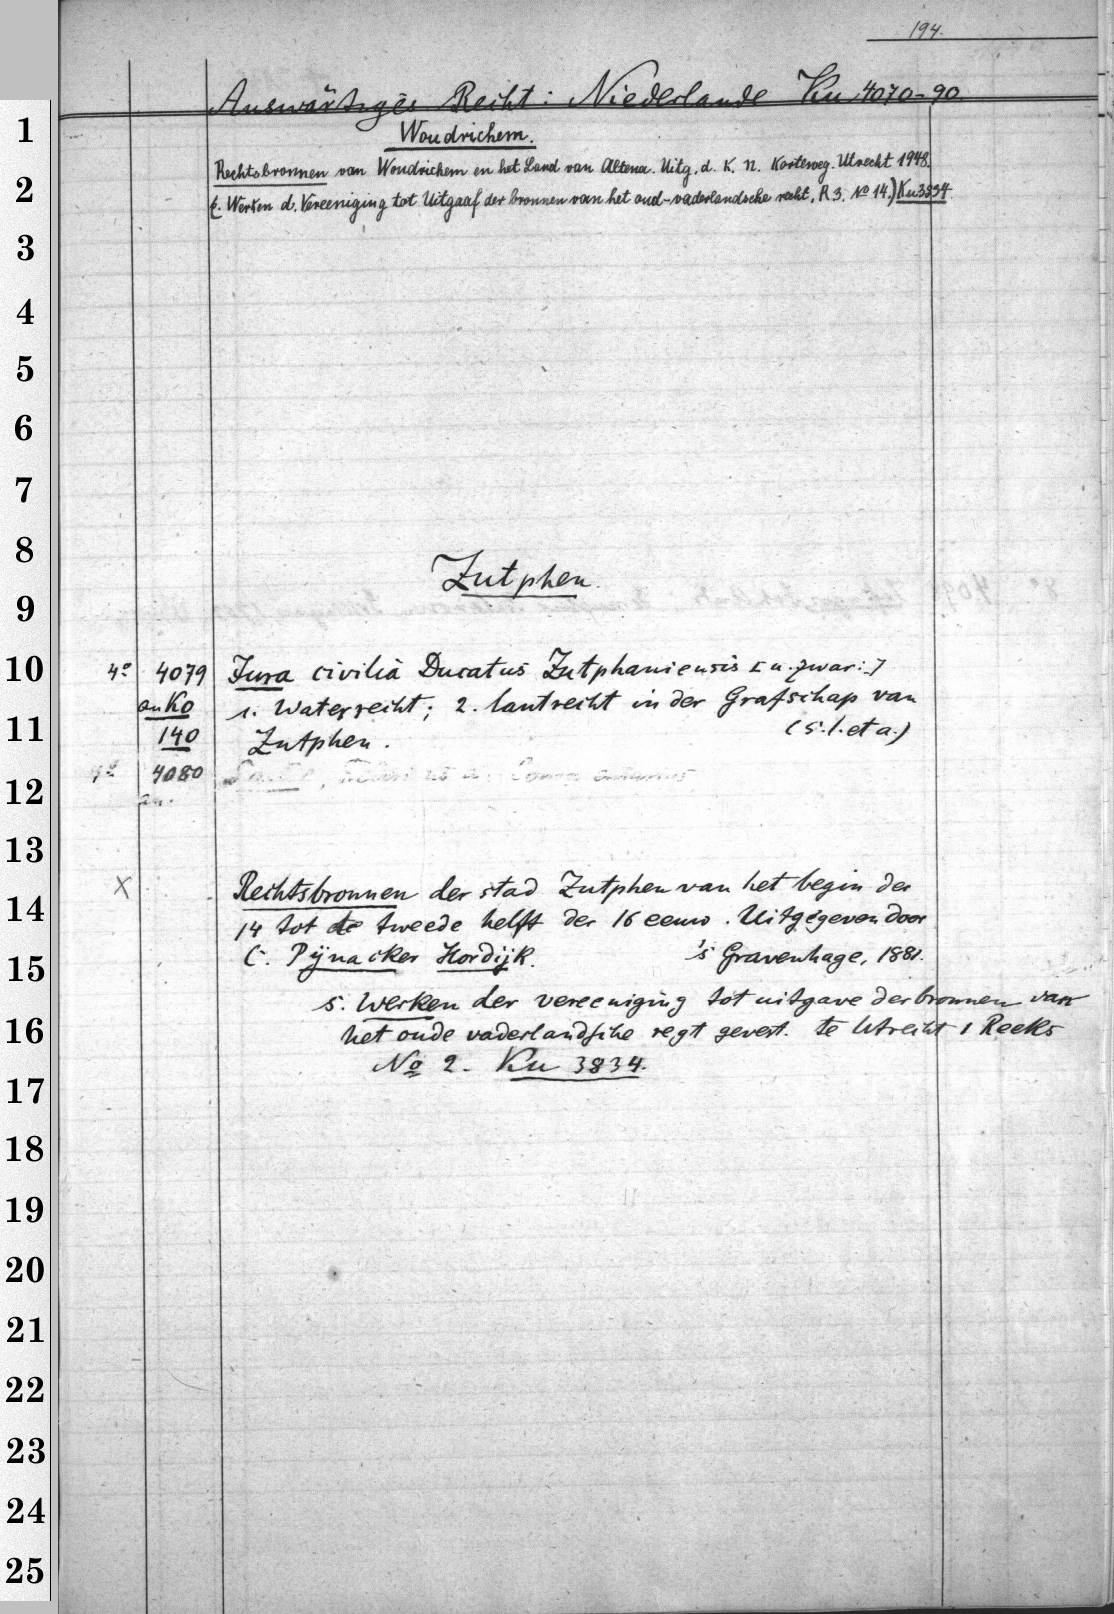 194.
Auswärtiges Recht: Niederlande Ku 4070-90
1
Woudrichem.
Rechtsbronnen van Woudrichem en het Land van Altena. Uitg. d. K. N. Korteweg. Utrecht 1948.
2
(i. Werken d. Vereeniging tot Uitgaaf der bronnen van het oud-vaderlandsche recht, R 3. No 14.) Ku3834
3
4
5
6
7
8
Zutphen.
9
10
4º 4079 Jura civilia Ducatus Zutphaniensis [u. zwar:]
an Ko 1. Waterrecht; 2. lantrecht in der Grafschap van
11
140 Zutphen. (s. l. et a.)
4º 4080
12
an.
13
X Rechtsbronnen der stad Zutphen van het begin der
14
14 tot de tweede helft der 16 eeuw. Uitgegeven door
15
C. Pijnacker Hordijk. 's Gravenhage, 1881.
s. Werken der vereeniging tot uitgave der bronnen van
16
het oude vaderlandsche regt gevest. te Utrecht 1 Reeks
No 2. Ku 3834.
17
18
19
20
21
22
23
24
25